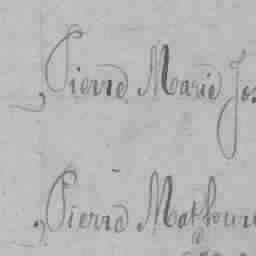 Pierre Marie Jos
Pierre Mathurin